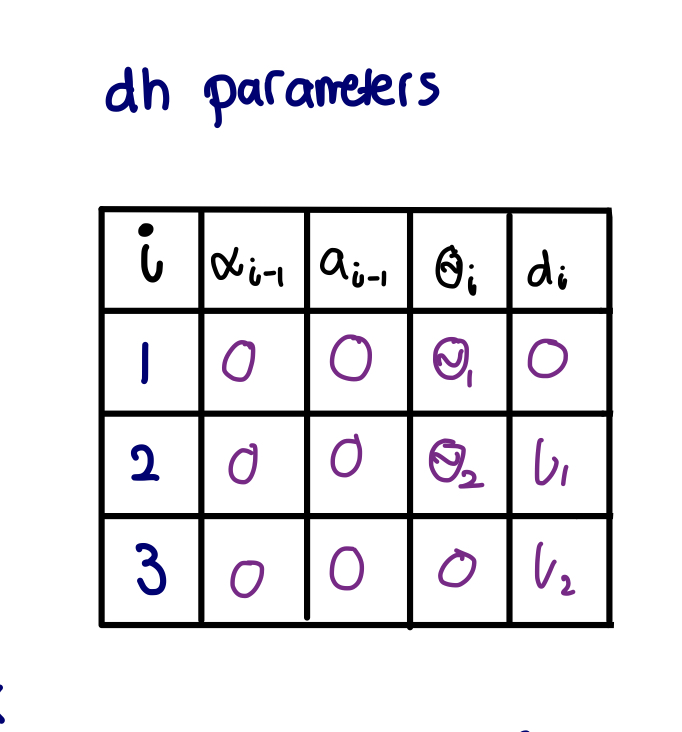 dh parameters
i αi-1 ai-1 θi di
1 0 0 θ1 0
2 0 0 θ2 l1
3 0 0 0 l2